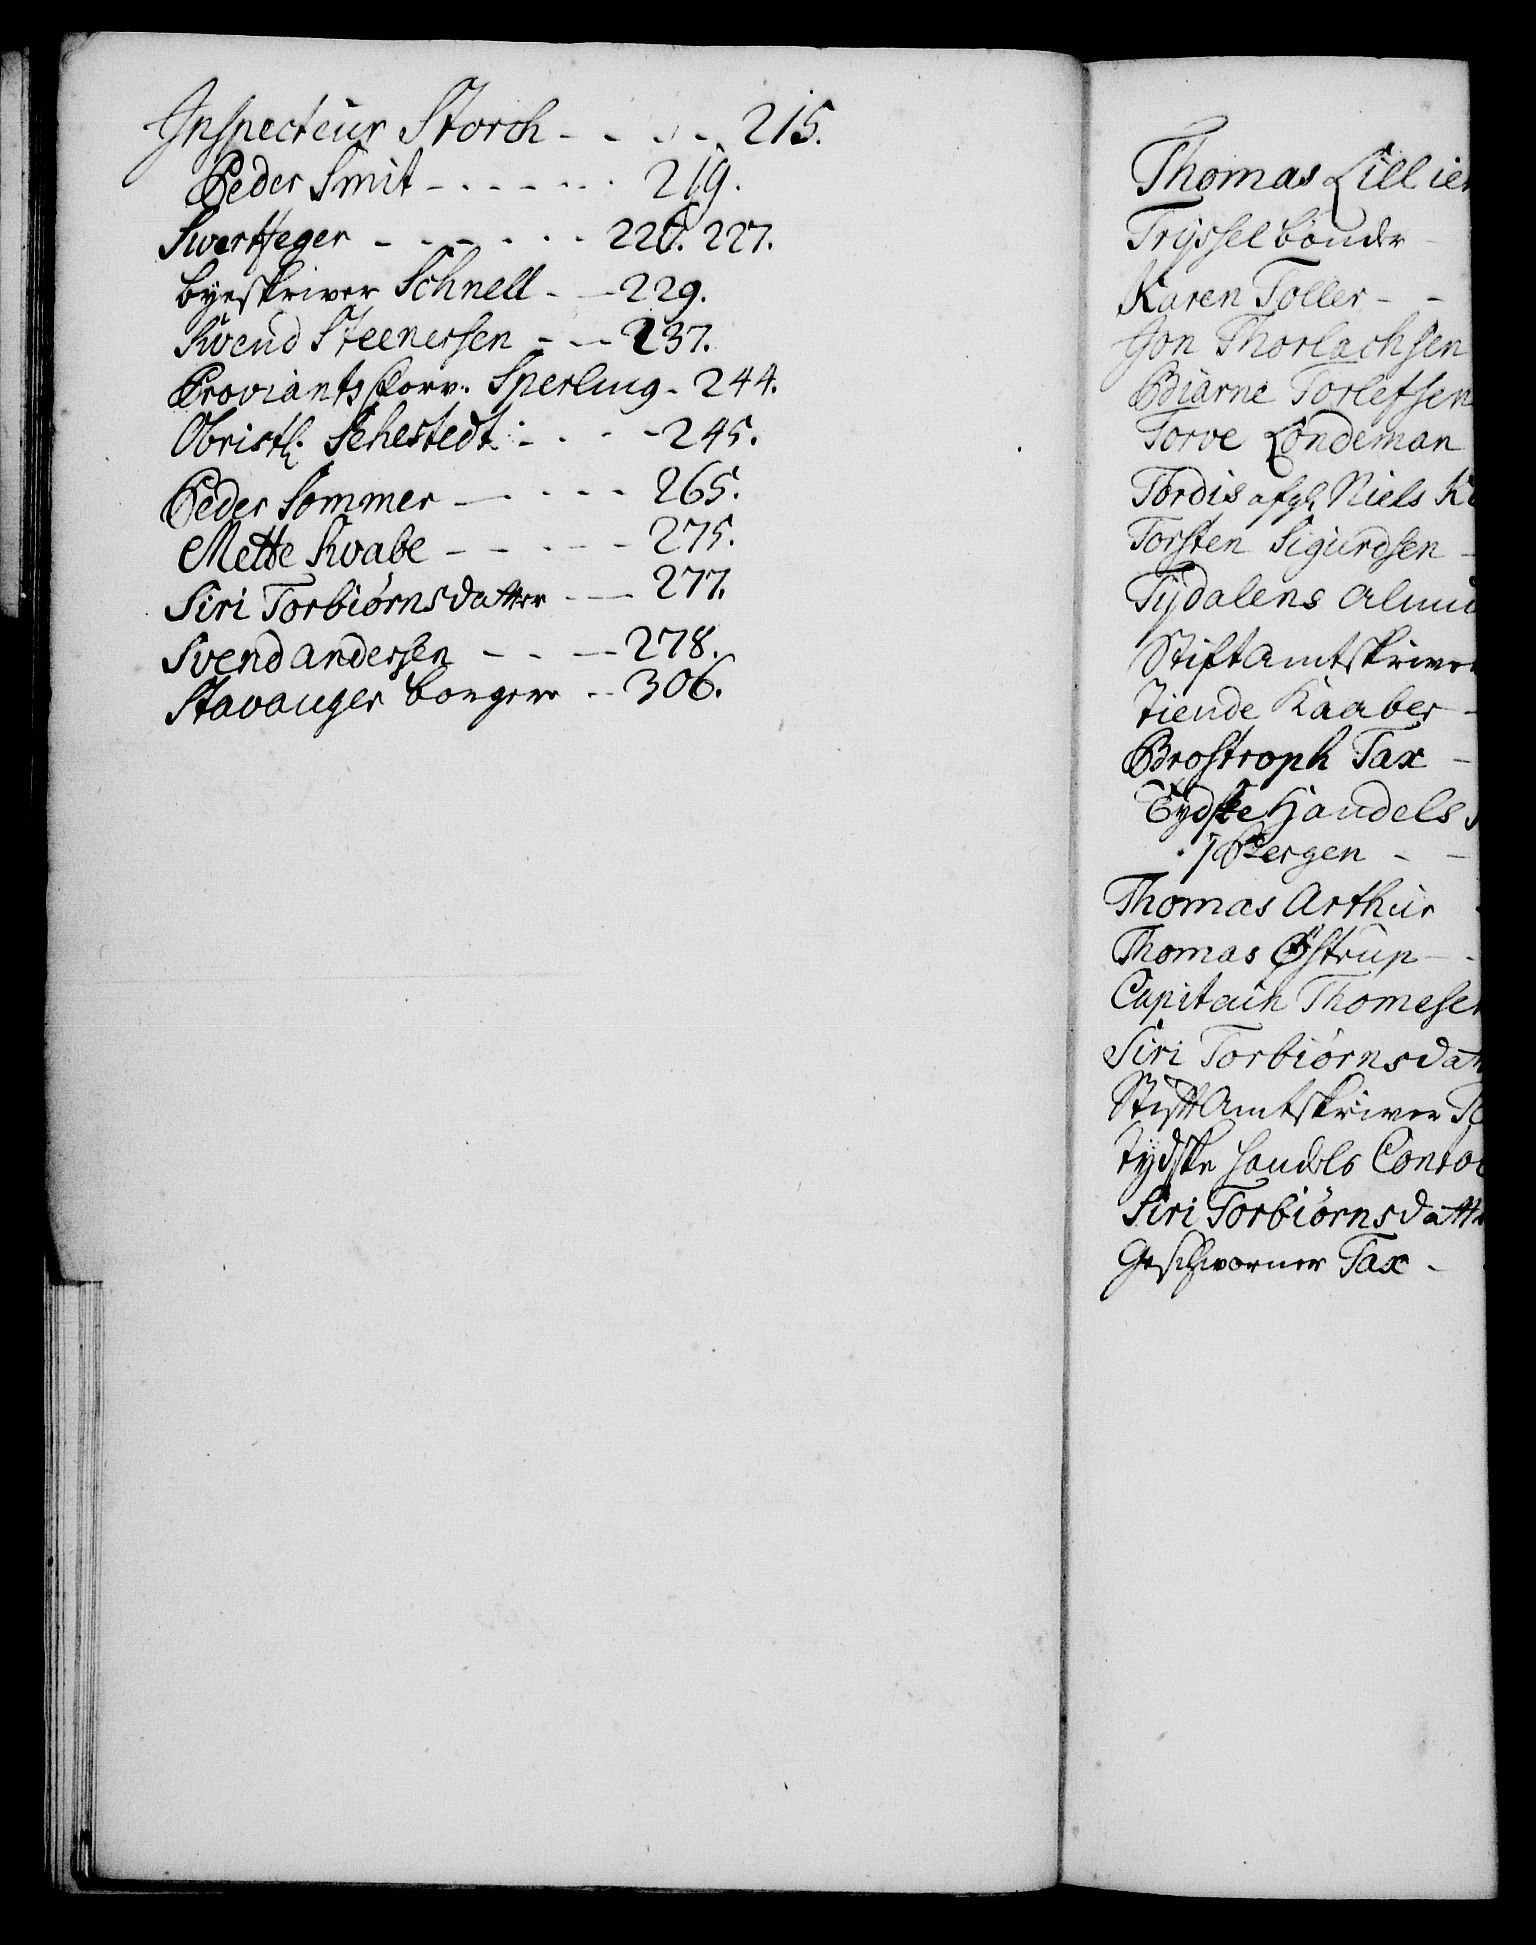 Inspecteur Storch - - - - 215.
Peder Smit - - - - - - 219.
Swertfeger - - - - - - 226. 227.
byeskriver Schnell - - 229.
Svend Steenersen - - - 237.
Proviantskorv. Sperling - 244.
Obristl. Sehestedt - - - - 245.
Peder Sommer - - - - - 265.
Mette Svabe - - - - - 275.
Siri Torbiørnsdatter - - 277.
Svend andersen - - - - 278.
Stavanger borgere - - 306.
Thomas Lillien
Tryssel bønder -
Karen Toller - -
Jon Thorlachsen
Biarne Torlefsen
Torve Londeman
Tordis afgl. Niels
Torsten Sigurdsen -
Tydalens Almu
StiftAmtskriver
Tiende Kaaber -
Brostroph Tax -
Tydske Handels
i Bergen - -
Thomas Arthur
Thomas Østrup -
Capitain Thomesen
Siri Torbiørnsdatt
StiftAmtskriver
tydske handels Contoi
Siri Torbiørnsdatte
Geschworner Tax -